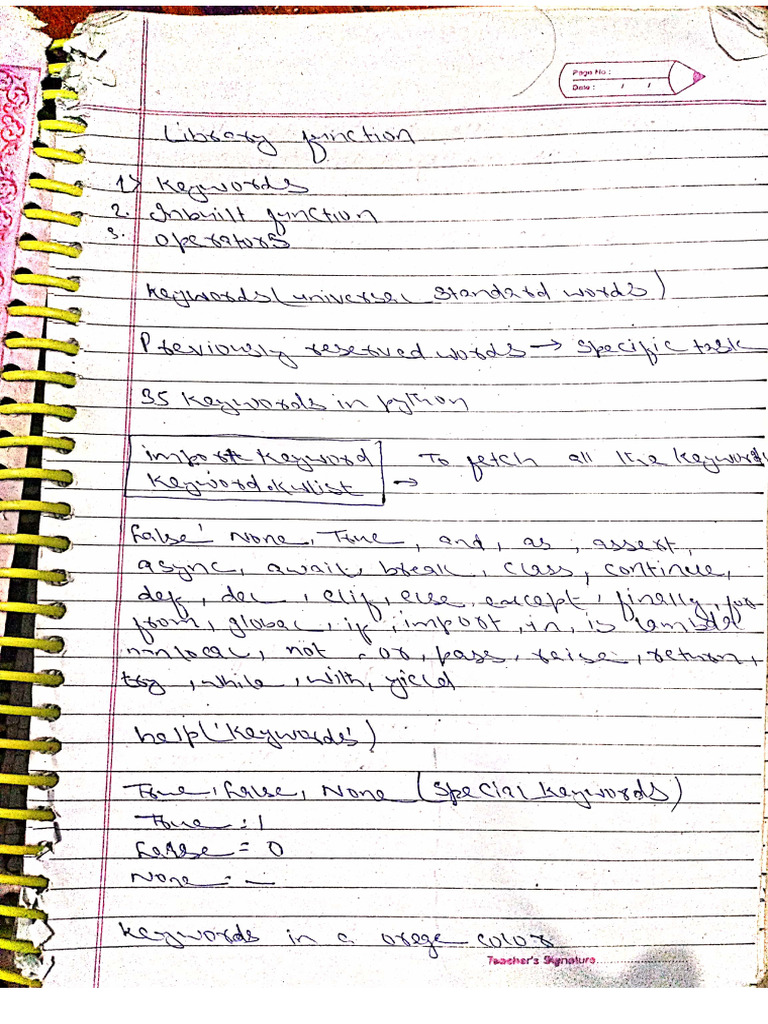 Page No :
Date : / /
Library function
1) Keywords
2. Inbuilt function
3. operators
Keywords (universal standard words)
Previously reserved words → specific task
35 Keywords in python
import Keyword
Keyword.kwlist → To fetch all the keywords
False, None, True, and, as, assert,
async, await, break, class, continue,
def, del, elif, else, except, finally, for
from, global, if, import, in, is lambda
nonlocal, not, or, pass, raise, return,
try, while, with, yield
help('keywords')
True, False, None (special keywords)
True = 1
False = 0
None = —
Keywords in a orege color
Teacher's Signature